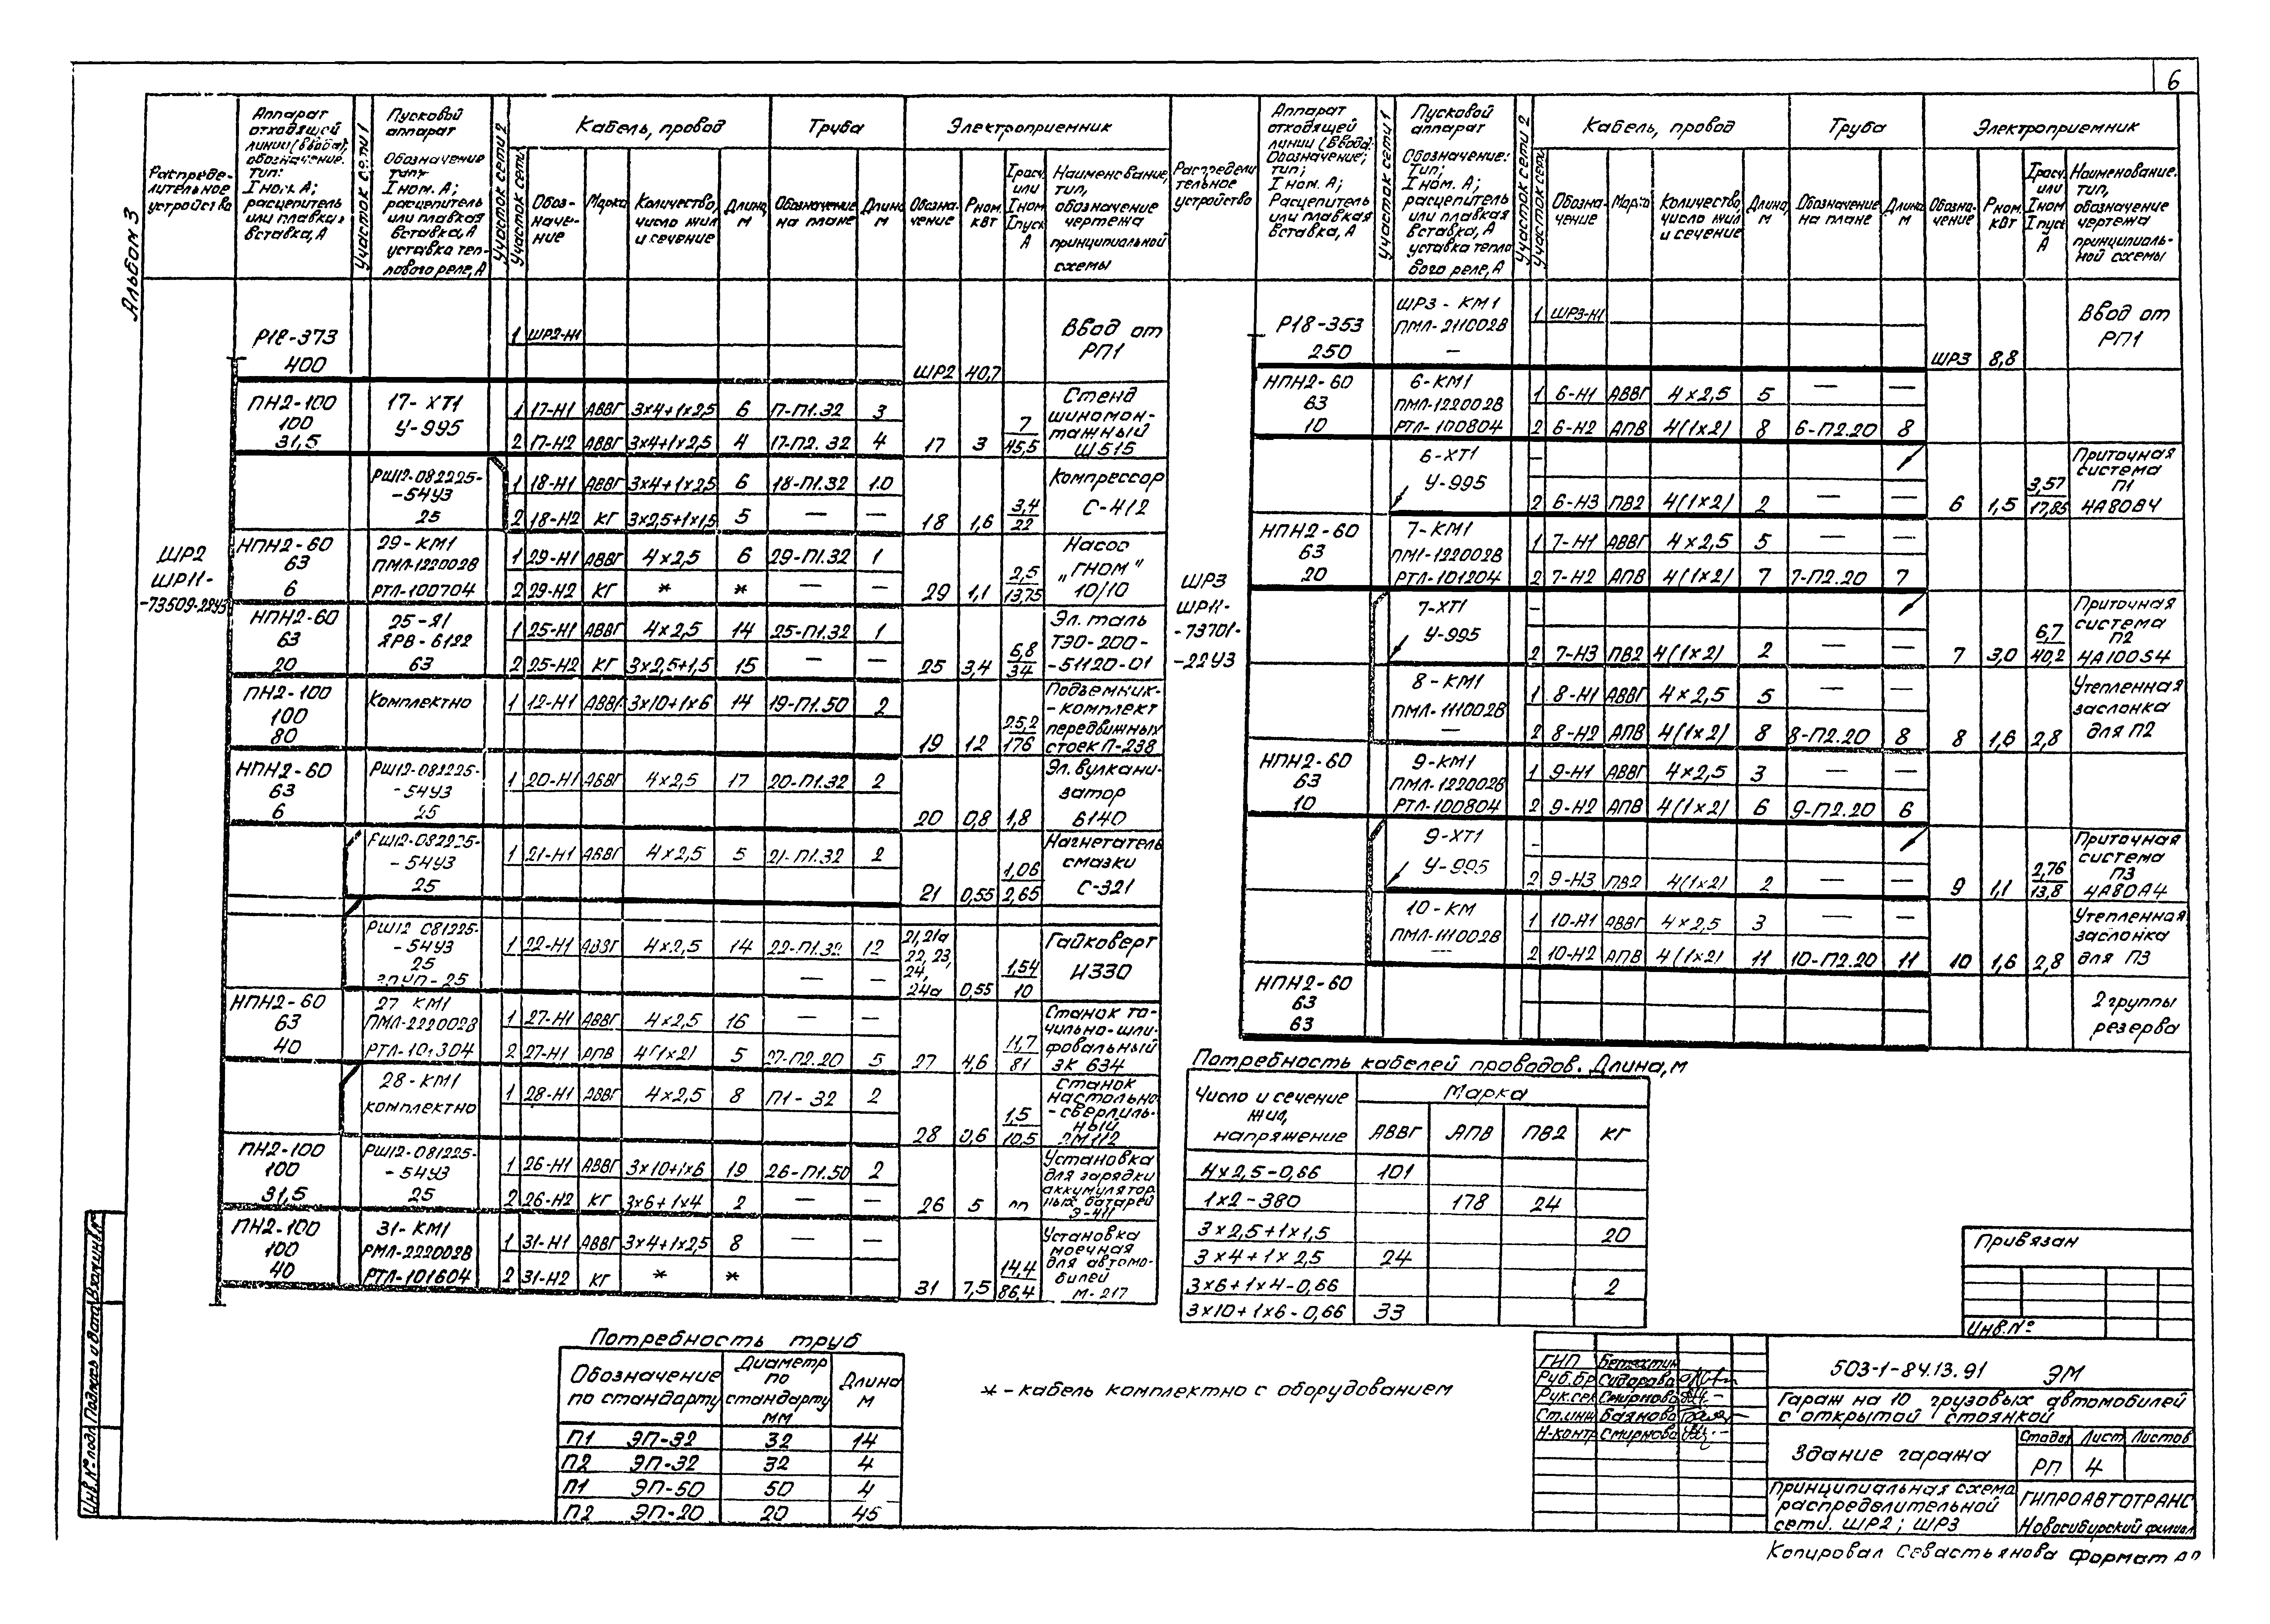 6
Альбом 3
Распределительное устройство
Аппарат отходящей линии (ввода), обозначение. Тип: Iном. А; расцепитель или плавкая вставка, А
Участок сети 1
Пусковой аппарат Обозначение тип Iном. А; расцепитель или плавкая вставка, А уставка теплового реле, А
Участок сети 2
Участок сети
Кабель, провод
Обозначение
Марка
Количество, число жил и сечение
Длина, м
Труба
Обозначение на плане
Длина м
Электроприемник
Обозначение
Рном. кВт
Iрасч. или Iном Iпуск А
Наименование, тип, обозначение чертежа принципиальной схемы
ШР2 ШР11- -73509-22У3
Р18-373 400 1 ШР2-Н1 ШР2 40,7 Ввод от РП1
ПН2-100 100 31,5 17-ХТ1 У-995
1 17-Н1 АВВГ 3×4+1×2,5 6 17-П1.32 3
2 17-Н2 АВВГ 3×4+1×2,5 4 17-П2.32 4 17 3 7 45,5 Стенд шиномонтажный Ш515
РШ12-082225- -54У3 25
1 18-Н1 АВВГ 3×4+1×2,5 6 18-П1.32 1.0
2 18-Н2 КГ 3×2,5+1×1,5 5 — — 18 1,6 3,4 22 Компрессор С-412
НПН2-60 63 6 29-КМ1 ПМЛ-122002В РТЛ-100704
1 29-Н1 АВВГ 4×2,5 6 29-П1.32 1
2 29-Н2 КГ * * — — 29 1,1 2,5 13,75 Насос „ГНОМ" 10/10
НПН2-60 63 20 25-Я1 ЯРВ-6122 63
1 25-Н1 АВВГ 4×2,5 14 25-П1.32 1
2 25-Н2 КГ 3×2,5+1,5 15 — — 25 3,4 6,8 34 Эл. таль ТЭ0-200- -51120-01
ПН2-100 100 80 Комплектно
1 12-Н1 АВВГ 3×10+1×6 14 19-П1.50 2 19 12 25,2 176 Подъемник- -комплект передвижных стоек П-238
НПН2-60 63 6 РШ12-082225- -54У3 25
1 20-Н1 АВВГ 4×2,5 17 20-П1.32 2 20 0,8 1,8 Эл. вулканизатор 6140
РШ12-082225- -54У3 25
1 21-Н1 АВВГ 4×2,5 5 21-П1.32 2 21 0,55 1,06 2,65 Нагнетатель смазки С-321
РШ12 081225- -54У3 25
1 22-Н1 АВВГ 4×2,5 14 22-П1.32 12 — — 21,21а 22, 23, 24, 24а 0,55 1,54 10 Гайковерт И330
НПН2-60 63 40 27 КМ1 ПМЛ-222002В РТЛ-101304
1 27-Н1 АВВГ 4×2,5 16 — —
2 27-Н1 АПВ 4(1×2) 5 27-П2.20 5 27 4,6 11,7 81 Станок точильно-шлифовальный 3К 634
28-КМ1 комплектно
1 28-Н1 АВВГ 4×2,5 8 П1-32 2 28 0,6 1,5 10,5 Станок настольно- -сверлильный 2М112
ПН2-100 100 31,5 РШ12-081225- -54У3 25
1 26-Н1 АВВГ 3×10+1×6 19 26-П1.50 2
2 26-Н2 КГ 3×6+1×4 2 — — 26 5 Установка для зарядки аккумуляторных батарей Э-411
ПН2-100 100 40 31-КМ1 РМЛ-222002В РТЛ-101604
1 31-Н1 АВВГ 3×4+1×2,5 8 — —
2 31-Н2 КГ * * 31 7,5 14,4 86,4 Установка моечная для автомобилей М-217
Распределительное устройство
Аппарат отходящей линии (ввода). Обозначение; тип; Iном. А; Расцепитель или плавкая вставка, А
Участок сети 1
Пусковой аппарат Обозначение: Тип; Iном. А; расцепитель или плавкая вставка, А уставка теплового реле, А
Участок сети 2
Участок сети
Кабель, провод
Обозначение
Марка
Количество, число жил и сечение
Длина, м
Труба
Обозначение на плане
Длина м
Электроприемник
Обозначение
Рном. кВт
Iрасч. или Iном Iпуск А
Наименование. тип, обозначение чертежа принципиальной схемы
ШР3 ШР11- -73701- -22У3
Р18-353 250 ШР3-КМ1 ПМЛ-211002В — 1 ШР3-Н1 ШР3 8,8 Ввод от РП1
НПН2-60 63 10 6-КМ1 ПМЛ-122002В РТЛ-100804
1 6-Н1 АВВГ 4×2,5 5 — —
2 6-Н2 АПВ 4(1×2) 8 6-П2.20 8
6-ХТ1 У-995 —
2 6-Н3 ПВ2 4(1×2) 2 — — 6 1,5 3,57 17,85 Приточная система П1 4А80В4
НПН2-60 63 20 7-КМ1 ПМ1-122002В РТЛ-101204
1 7-Н1 АВВГ 4×2,5 5 — —
2 7-Н2 АПВ 4(1×2) 7 7-П2.20 7
7-ХТ1 У-995 —
2 7-Н3 ПВ2 4(1×2) 2 — — 7 3,0 6,7 40,2 Приточная система П2 4А100S4
8-КМ1 ПМЛ-111002В —
1 8-Н1 АВВГ 4×2,5 5 — —
2 8-Н2 АПВ 4(1×2) 8 8-П2.20 8 8 1,6 2,8 Утепленная заслонка для П2
НПН2-60 63 10 9-КМ1 ПМЛ-122002В РТЛ-100804
1 9-Н1 АВВГ 4×2,5 3 — —
2 9-Н2 АПВ 4(1×2) 6 9-П2.20 6
9-ХТ1 У-995 -
2 9-Н3 ПВ2 4(1×2) 2 — — 9 1,1 2,76 13,8 Приточная система П3 4А80А4
10-КМ ПМЛ-111002В —
1 10-Н1 АВВГ 4×2,5 3 — —
2 10-Н2 АПВ 4(1×2) 11 10-П2.20 11 10 1,6 2,8 Утепленная заслонка для П3
НПН2-60 63 63 2 группы резерва
Потребность кабелей проводов. Длина, м
Число и сечение жил, напряжение
Марка
АВВГ АПВ ПВ2 КГ
4×2,5-0,66 101
1×2-380 178 24
3×2,5+1×1,5 20
3×4+1×2,5 24
3×6+1×4-0,66 2
3×10+1×6-0,66 33
Потребность труб
Обозначение по стандарту
Диаметр по стандарту мм
Длина м
П1 ЭП-32 32 14
П2 ЭП-32 32 4
П1 ЭП-50 50 4
П2 ЭП-20 20 45
* - кабель комплектно с оборудованием
Привязан
Инв.№
ГИП
Рук.бр Сидорова
Рук.сек Смирнова
Ст.инж Баянова
Н-контр Смирнова
503-1-84.13.91 ЭМ
Гараж на 10 грузовых автомобилей с открытой стоянкой
Здание гаража
Стадия Лист Листов
РП 4
Принципиальная схема распределительной сети. ШР2; ШР3
ГИПРОАВТОТРАНС
Новосибирский филиал
Копировал Севастьянова Формат
Инв.№ подл. Подпись и дата Взам.инв.№